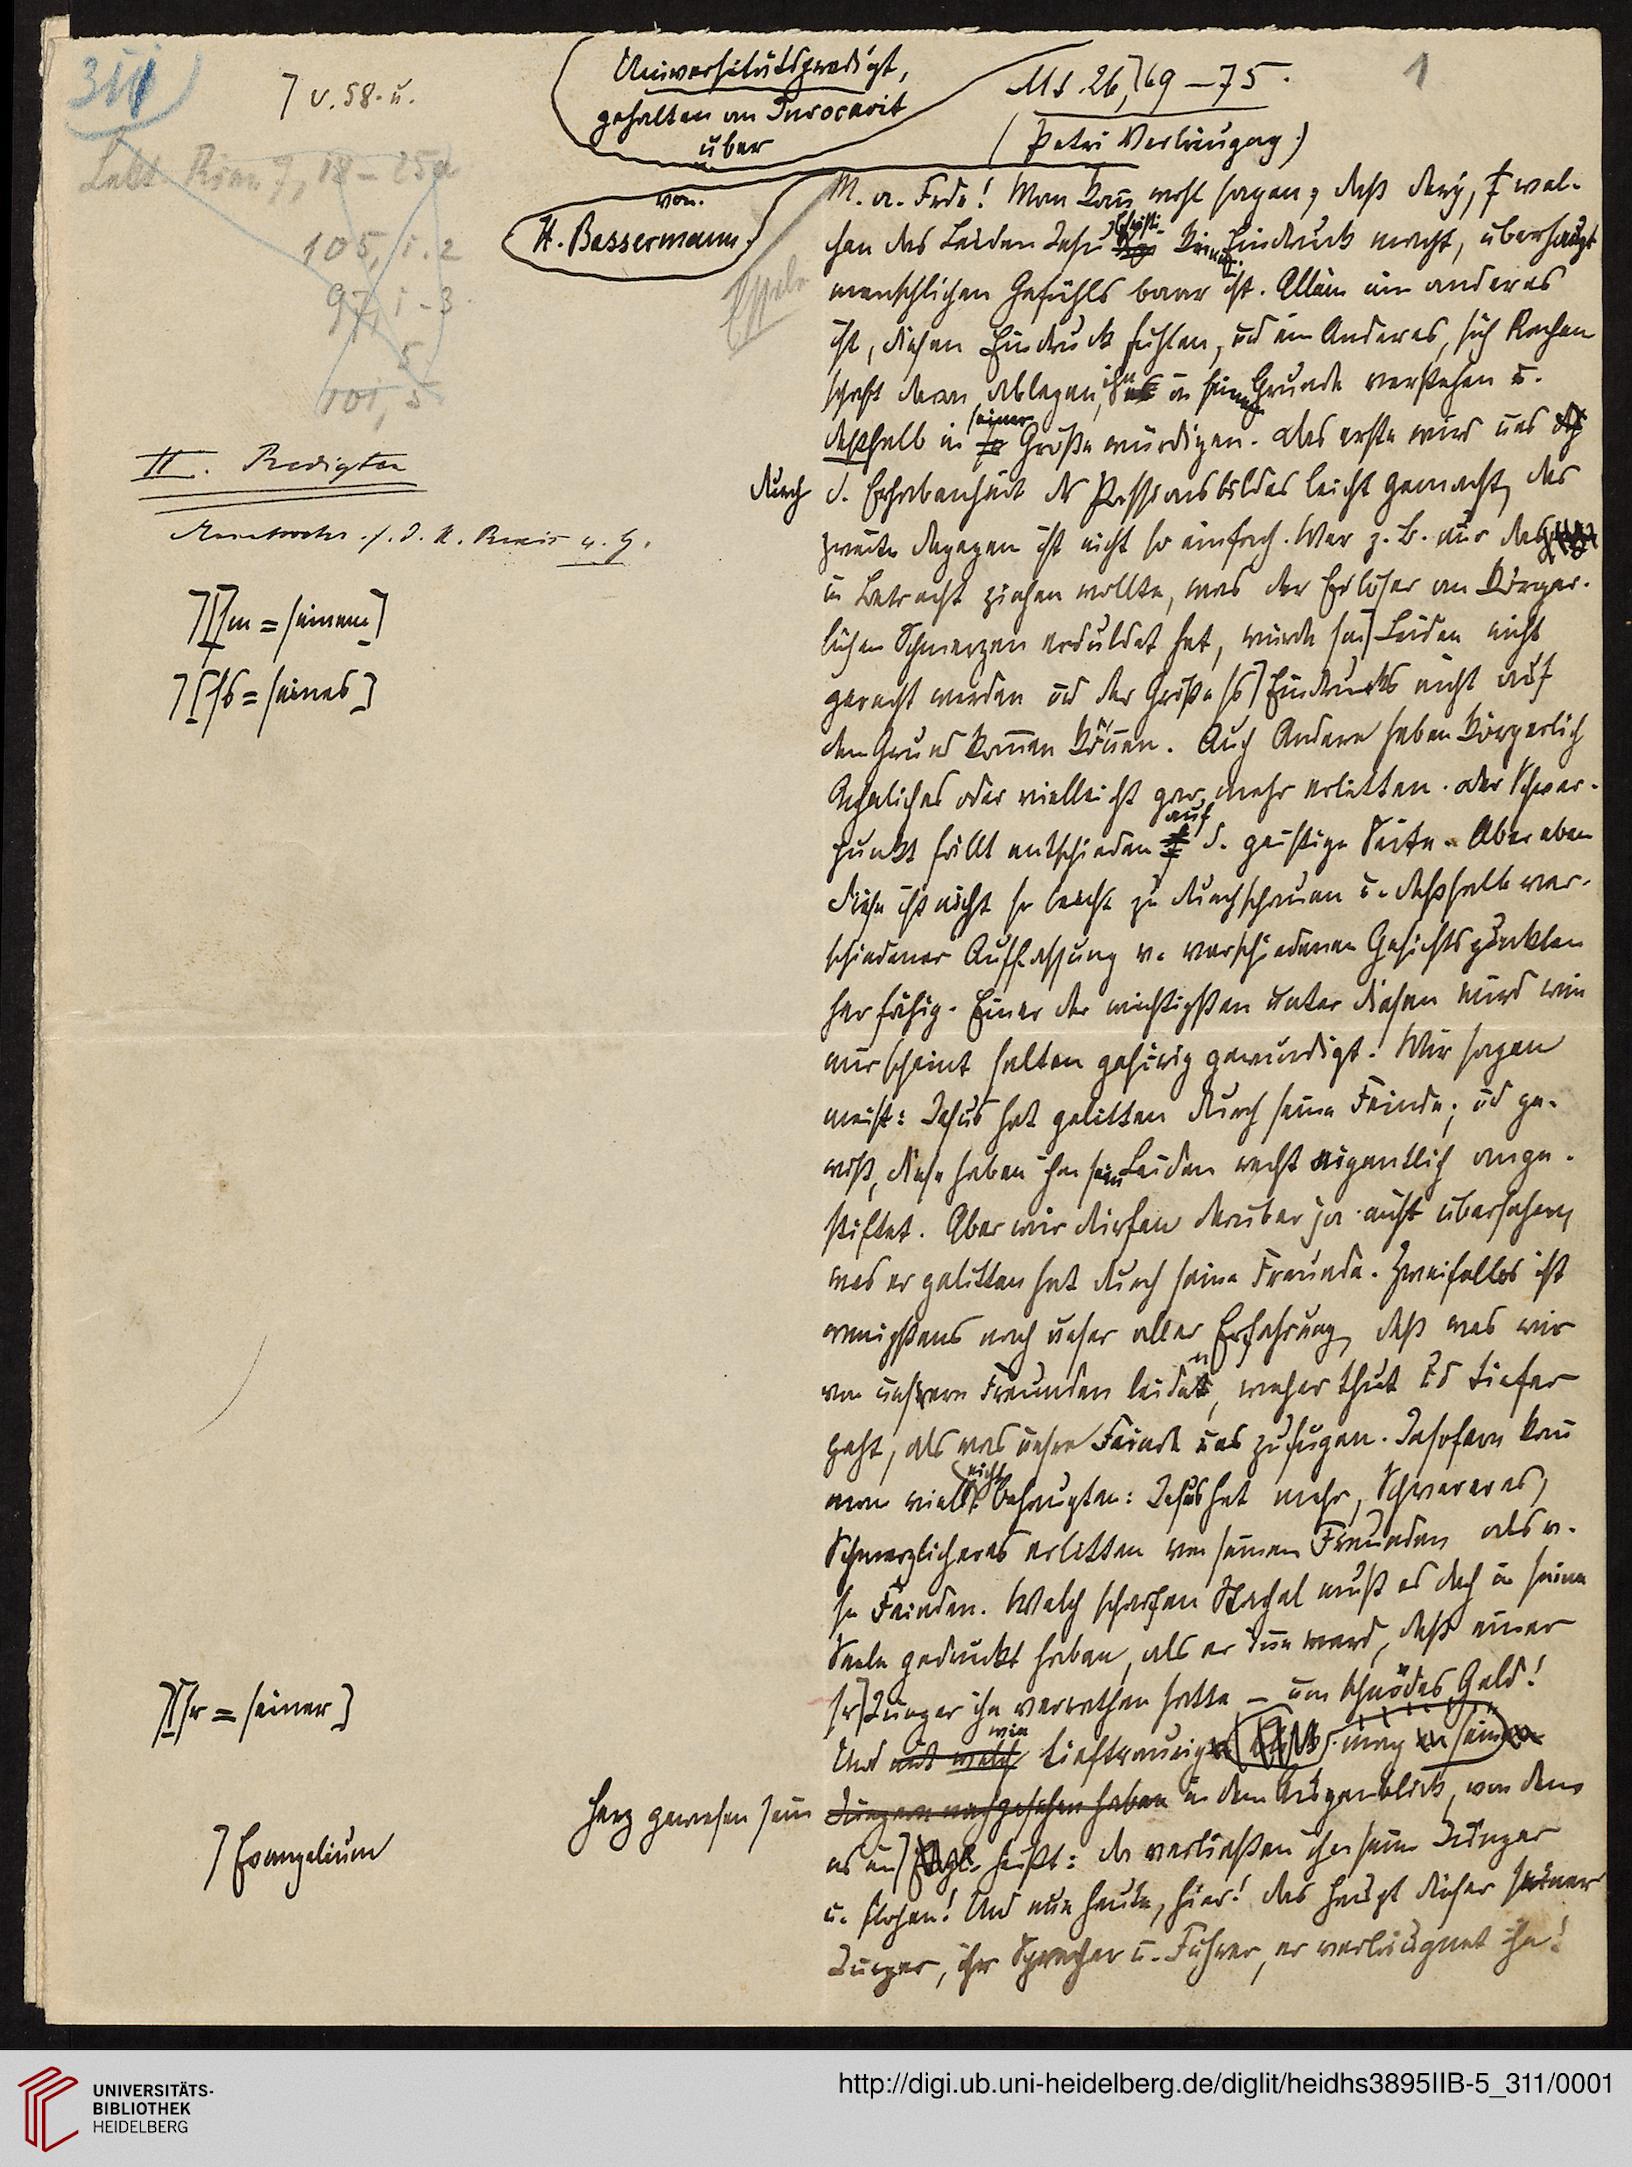 311
] v. 58. u.
Universitätspredigt,
gehalten an Invocavit
über
Mt. 26, 69–75.
(Petri Verleugng.)
1
Lekt. Röm. 7, 18–25a
105, 1. 2
97, 1–3.
5
101, 5
von
H. Bassermann.
II. Predigten
][m = seinem]
][ss = seines]
M. a. Frde! Man kann wohl sagen, daß derj, f wel-
chen das Leiden Jesu Christi keinen Eindruck macht, überhaupt
menschlichen Gefühls baar ist. Allein ein anderes
ist, diesen Eindruck fühlen, ud ein Anderes, sich Rechen
schaft davon ablegen, ihn in seinem Grunde verstehen u.
deßhalb in seiner Größe würdigen. Das erste wird uns
durch d. Erhabenheit des Passionsbildes leicht gemacht, das
zweite dagegen ist nicht so einfach. Wer z. B. nur das
in Betracht ziehen wollte, was der Erlöser an körper-
lichen Schmerzen erduldet hat, würde sm] Leiden nicht
gerecht werden ud der Größe ss] Eindrucks nicht auf
den Grund kommen können. Auch Andere haben körperlich
Aehnliches oder vielleicht gar mehr erlitten. Der Schwer-
punkt fällt entschieden auf d. geistige Seite. Aber eben
diese ist nicht so leicht zu durchschauen u. deßhalb ver-
schiedener Auffassung v. verschiedenen Gesichtspunkten
her fähig. Einer der wichtigsten unter diesen wird wie
mir scheint selten gehörig gewürdigt. Wir sagen
meist: Jesus hat gelitten durch seine Feinde; ud ge-
wiß, diese haben ihm sein Leiden recht eigentlich ange-
stiftet. Aber wir dürfen darüber ja nicht übersehen,
was er gelitten hat durch seine Freunde. Zweifellos ist
wenigstens nach unser aller Erfahrung, daß was wir
von unsern Freunden leiden, weher thut ud tiefer
geht, als was unsre Feinde uns zufügen. Insofern kann
man vielleicht behaupten: Jesus hat mehr, Schwereres,
Schmerzlicheres erlitten von seinen Freunden als v.
sn Feinden. Welch scharfen Stachel muß es doch in seine
Seele gedrückt haben, als er inne ward, daß einer
sr] Jünger ihn verrathen hatte – um schnödes Geld!
][sr = seiner]
Und mit welch wie tieftraurig mag sein
Herz gewesen sein Jüngern nachgesehen haben in dem Augenblick, von dem
] Evangelium
es im] Evgl. heißt: da verließen ihn seine Jünger
u. flohen! Und nun heute, hier! das Haupt dieser seiner
Jünger, ihr Sprecher u. Führer, er verleugnet ihn!
UNIVERSITÄTS-
BIBLIOTHEK
HEIDELBERG
http://digi.ub.uni-heidelberg.de/diglit/heidhs3895IIB-5_311/0001